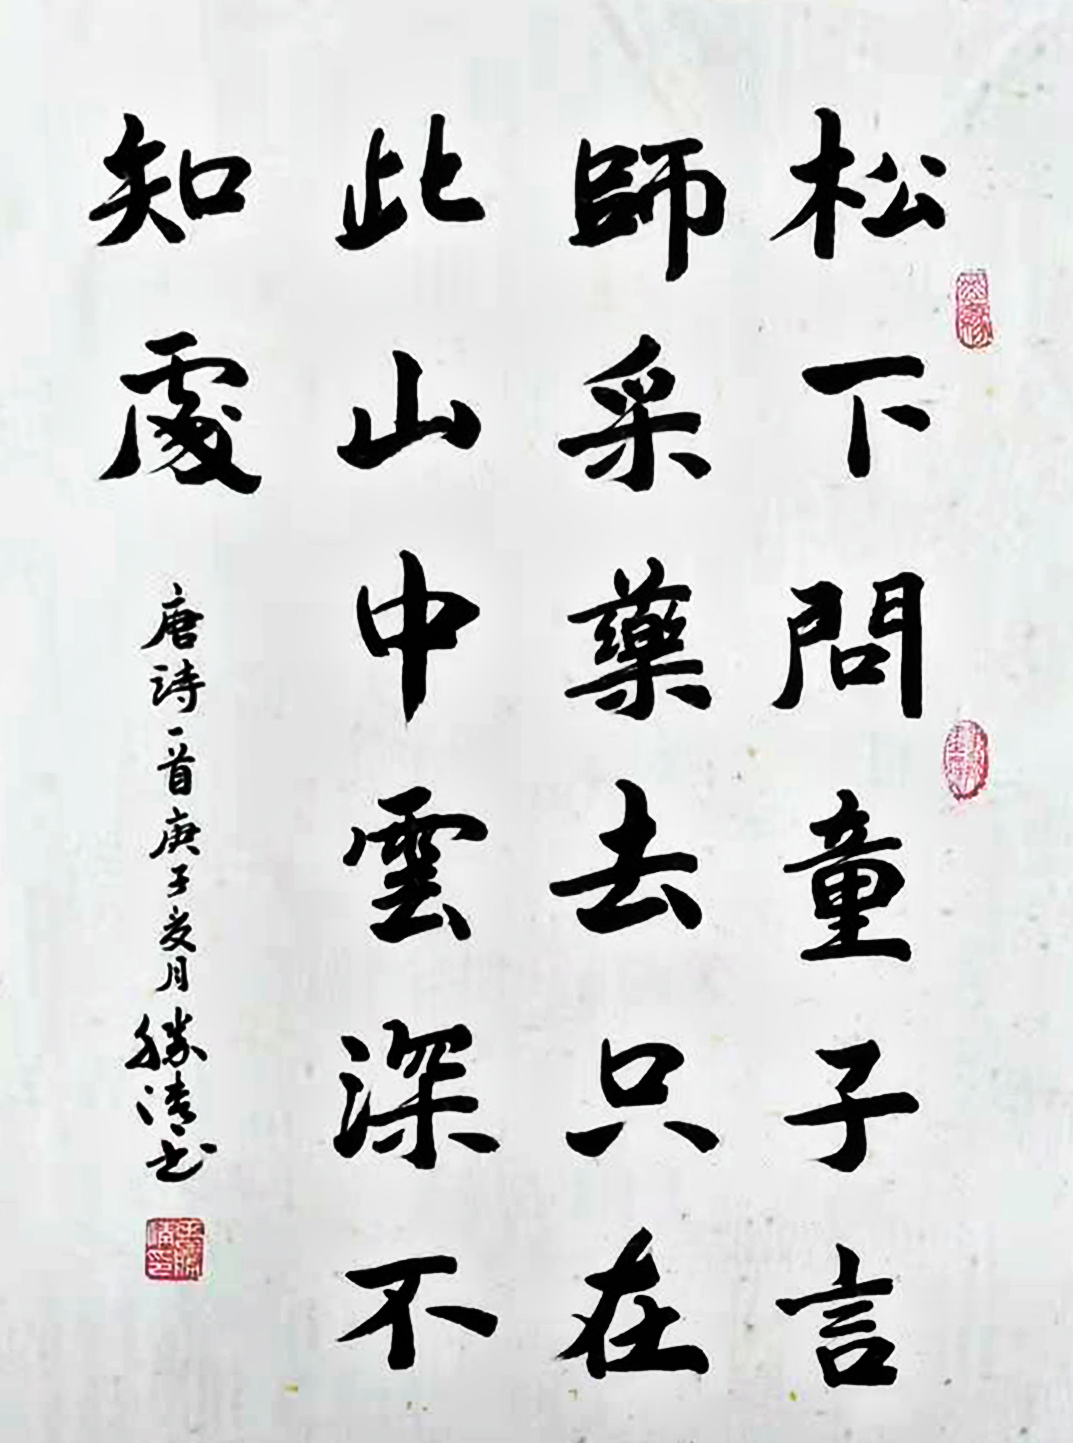 松下問童子言
師采藥去只在
此山中雲深不
知處
唐詩一首庚子亥月勝清书